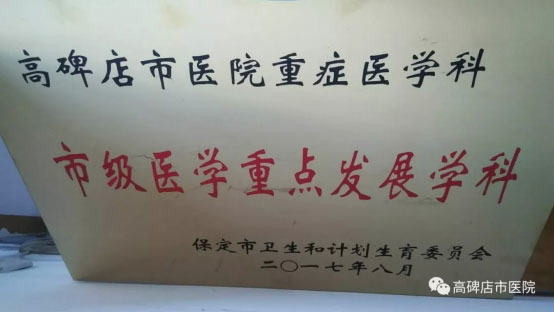 高碑店市医院重症医学科
市级医学重点发展学科
保定市卫生和计划生育委员会
二〇一七年八月
高碑店市医院